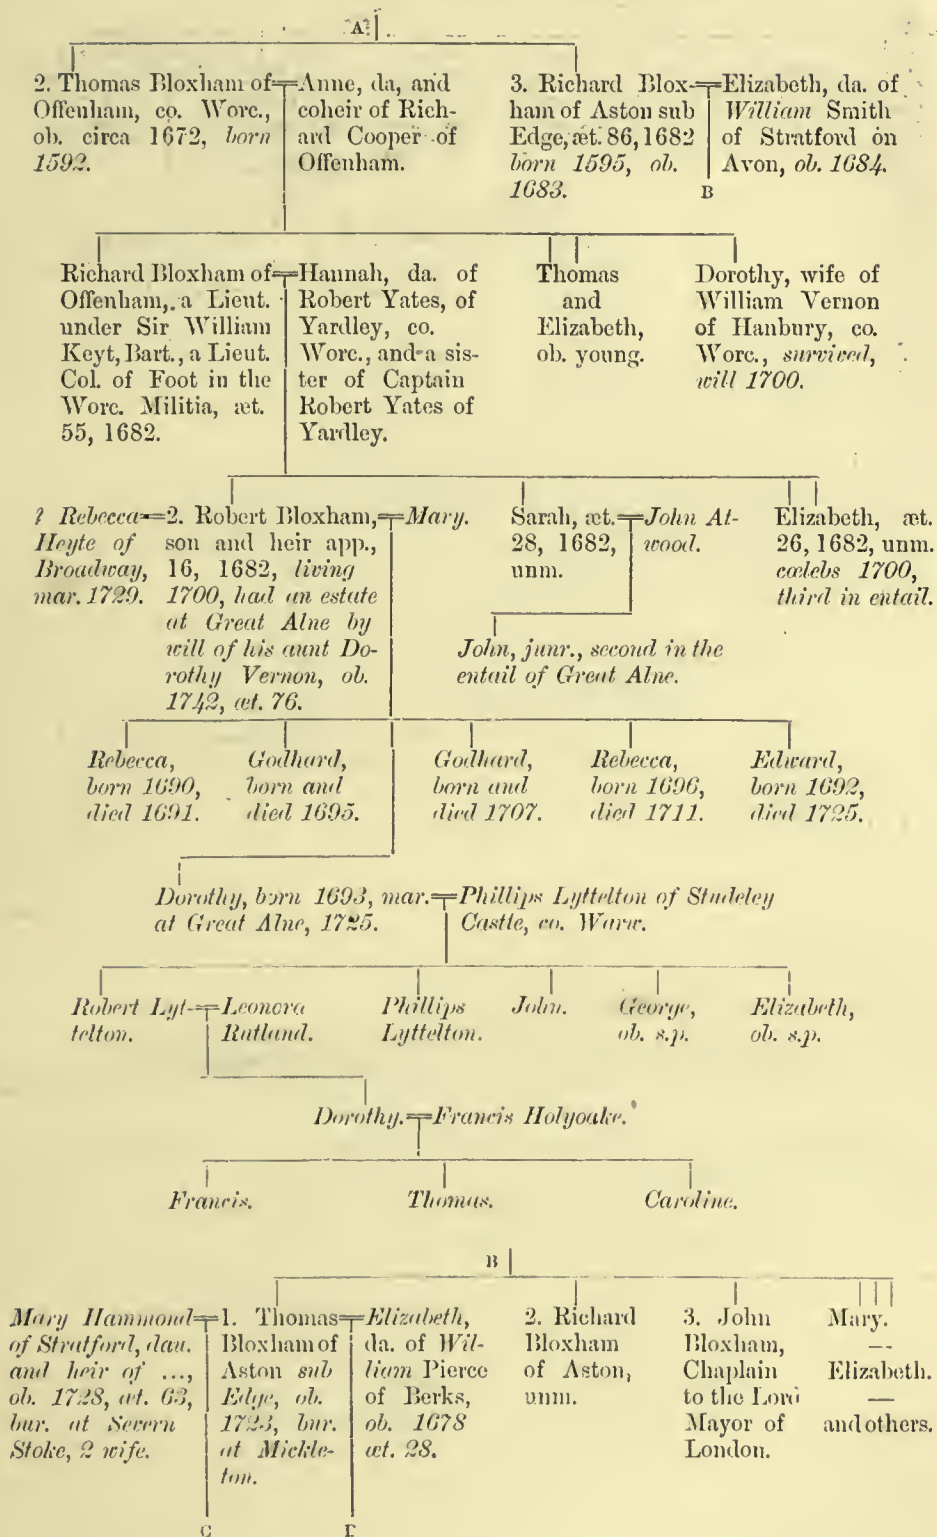 A
2. Thomas Bloxham of
Offenham, co. Worc.,
ob. circa 1672, born
1592.
Anne, da, and
coheir of Rich-
ard Cooper of
Offenham.
3. Richard Blox-
ham of Aston sub
Edge, æt. 86, 1682
born 1595, ob.
1683.
Elizabeth, da. of
William Smith
of Stratford on
Avon, ob. 1684.
B
Richard Bloxham of
Offenham, a Lieut.
under Sir William
Keyt, Bart., a Lieut.
Col. of Foot in the
Worc. Militia, æt.
55, 1682.
Hannah, da. of
Robert Yates, of
Yardley, co.
Worc., and a sis-
ter of Captain
Robert Yates of
Yardley.
Thomas
and
Elizabeth,
ob. young.
Dorothy, wife of
William Vernon
of Hanbury, co.
Worc., survived,
will 1700.
? Rebecca
Heyte of
Broadway,
mar. 1729.
2. Robert Bloxham,
son and heir app.,
16, 1682, living
1700, had an estate
at Great Alne by
will of his aunt Do-
rothy Vernon, ob.
1742, æt. 76.
Mary.
Sarah, æt.
28, 1682,
unm.
John At-
wood.
Elizabeth, æt.
26, 1682, unm.
cœlebs 1700,
third in entail.
John, junr., second in the
entail of Great Alne.
Rebecca,
born 1690,
died 1691.
Godhard,
born and
died 1695.
Godhard,
born and
died 1707.
Rebecca,
born 1696,
died 1711.
Edward,
born 1692,
died 1725.
Dorothy, born 1693, mar.
at Great Alne, 1725.
Phillips Lyttelton of Studeley
Castle, co. Warw.
Robert Lyt-
telton.
Leonora
Rutland.
Phillips
Lyttelton.
John.
George,
ob. s.p.
Elizabeth,
ob. s.p.
Dorothy.
Francis Holyoake.
Francis.
Thomas.
Caroline.
B
Mary Hammond
of Stratford, dau.
and heir of ...,
ob. 1728, æt. 63,
bur. at Severn
Stoke, 2 wife.
1. Thomas
Bloxham of
Aston sub
Edge, ob.
1723, bur.
at Mickle-
ton.
Elizabeth,
da. of Wil-
liam Pierce
of Berks,
ob. 1678
æt. 28.
2. Richard
Bloxham
of Aston,
unm.
3. John
Bloxham,
Chaplain
to the Lord
Mayor of
London.
Mary.
—
Elizabeth.
—
and others.
C